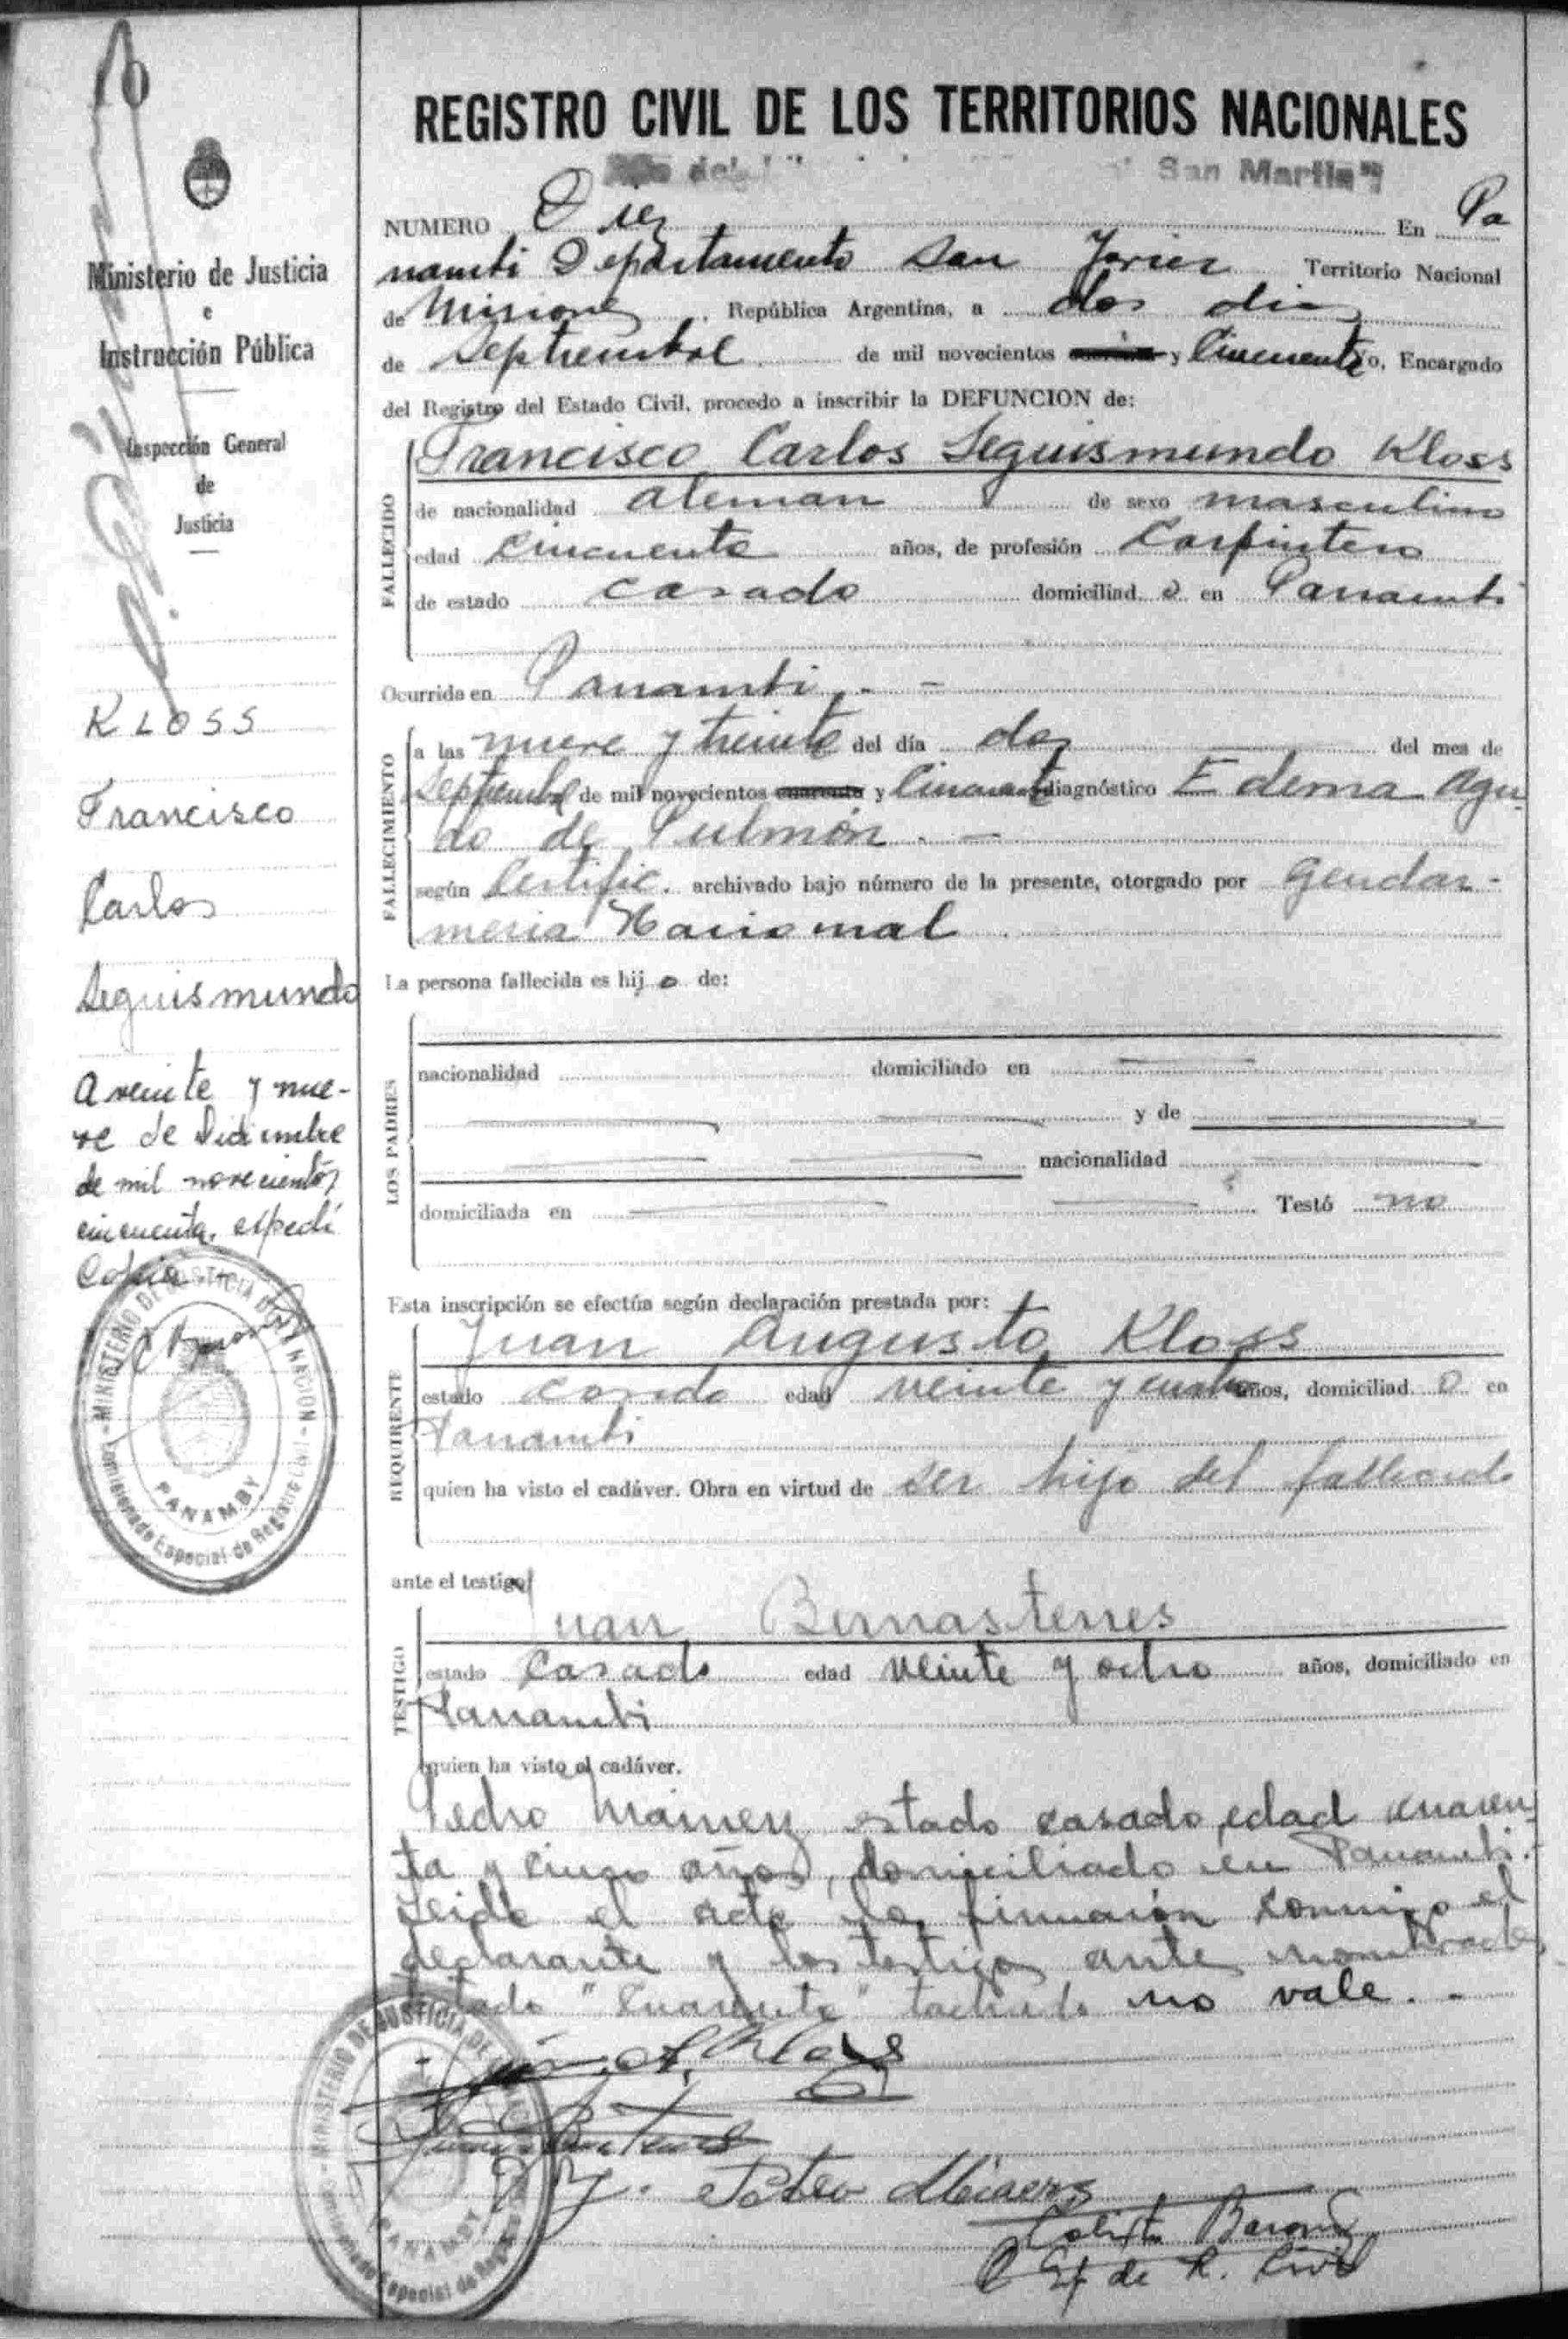 10
Ministerio de Justicia
e
Instrucción Pública
Inspección General
de
Justicia
KLOSS
Francisco
Carlos
Seguismundo
A veinte y nue-
ve de Diciembre
de mil novecientos
cincuenta, expedí
Copia
MINISTERIO DE JUSTICIA DE LA NACION
PANAMBY
Comisionado Especial de Registro Civil
REGISTRO CIVIL DE LOS TERRITORIOS NACIONALES
San Martin"
NUMERO Diez En Pa
nambi Departamento San Javier Territorio Nacional
de Misiones República Argentina, a dos dias
de Septiembre de mil novecientos y Cincuenta yo, Encargado
del Registro del Estado Civil, procedo a inscribir la DEFUNCION de:
FALLECIDO
Francisco Carlos Seguismundo Kloss
de nacionalidad aleman de sexo masculino
edad cincuenta años, de profesión Carpintero
de estado casado domiciliad o en Panambi
Ocurrida en Panambi . -
FALLECIMIENTO
a las nueve y treinta del día dos del mes de
Septiembre de mil novecientos cuarenta y Cincuenta diagnóstico Edema Agu-
do de Pulmón . -
según Certific. archivado bajo número de la presente, otorgado por Gendar-
meria Nacional
La persona fallecida es hij o de:
LOS PADRES
nacionalidad domiciliado en
y de
nacionalidad
domiciliada en Testó no
Esta inscripción se efectúa según declaración prestada por:
REQUIRENTE
Juan Augusto Kloss
estado casado edad veinte y cuatro años, domiciliad o en
Panambi
quien ha visto el cadáver. Obra en virtud de ser hijo del fallecido
ante el testigo
TESTIGO
Juan
estado Casado edad veinte y ocho años, domiciliado en
Panambi
quien ha visto el cadáver.
Pedro estado casado, edad cuaren-
ta y cinco años, domiciliado en Panambi.
Leida el acta la firmaron conmigo el
declarante y los testigos ante nombrados
"Cuarenta" tachado no vale. -
A. Kloss
MINISTERIO DE JUSTICIA DE
PANAMBY
Especial de Registro
Calixto
de R. Civil